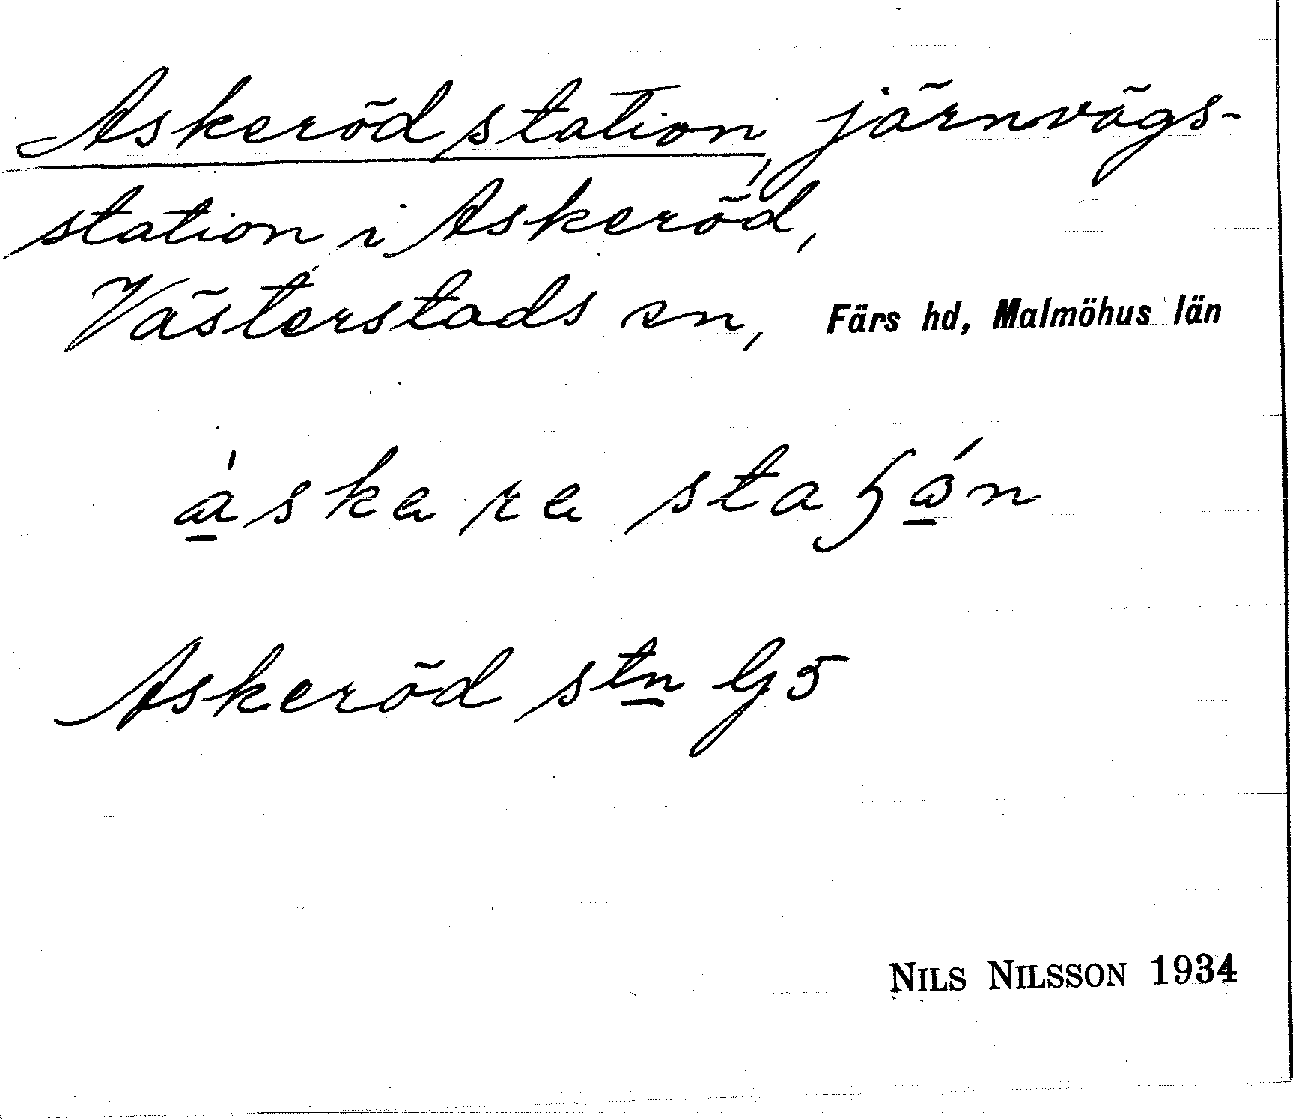 Askeröd station, järnvägs-
station i Askeröd,
Västerstads sn, Färs hd, Malmöhus län
Askeröd stn G5
NILS NILSSON 1934